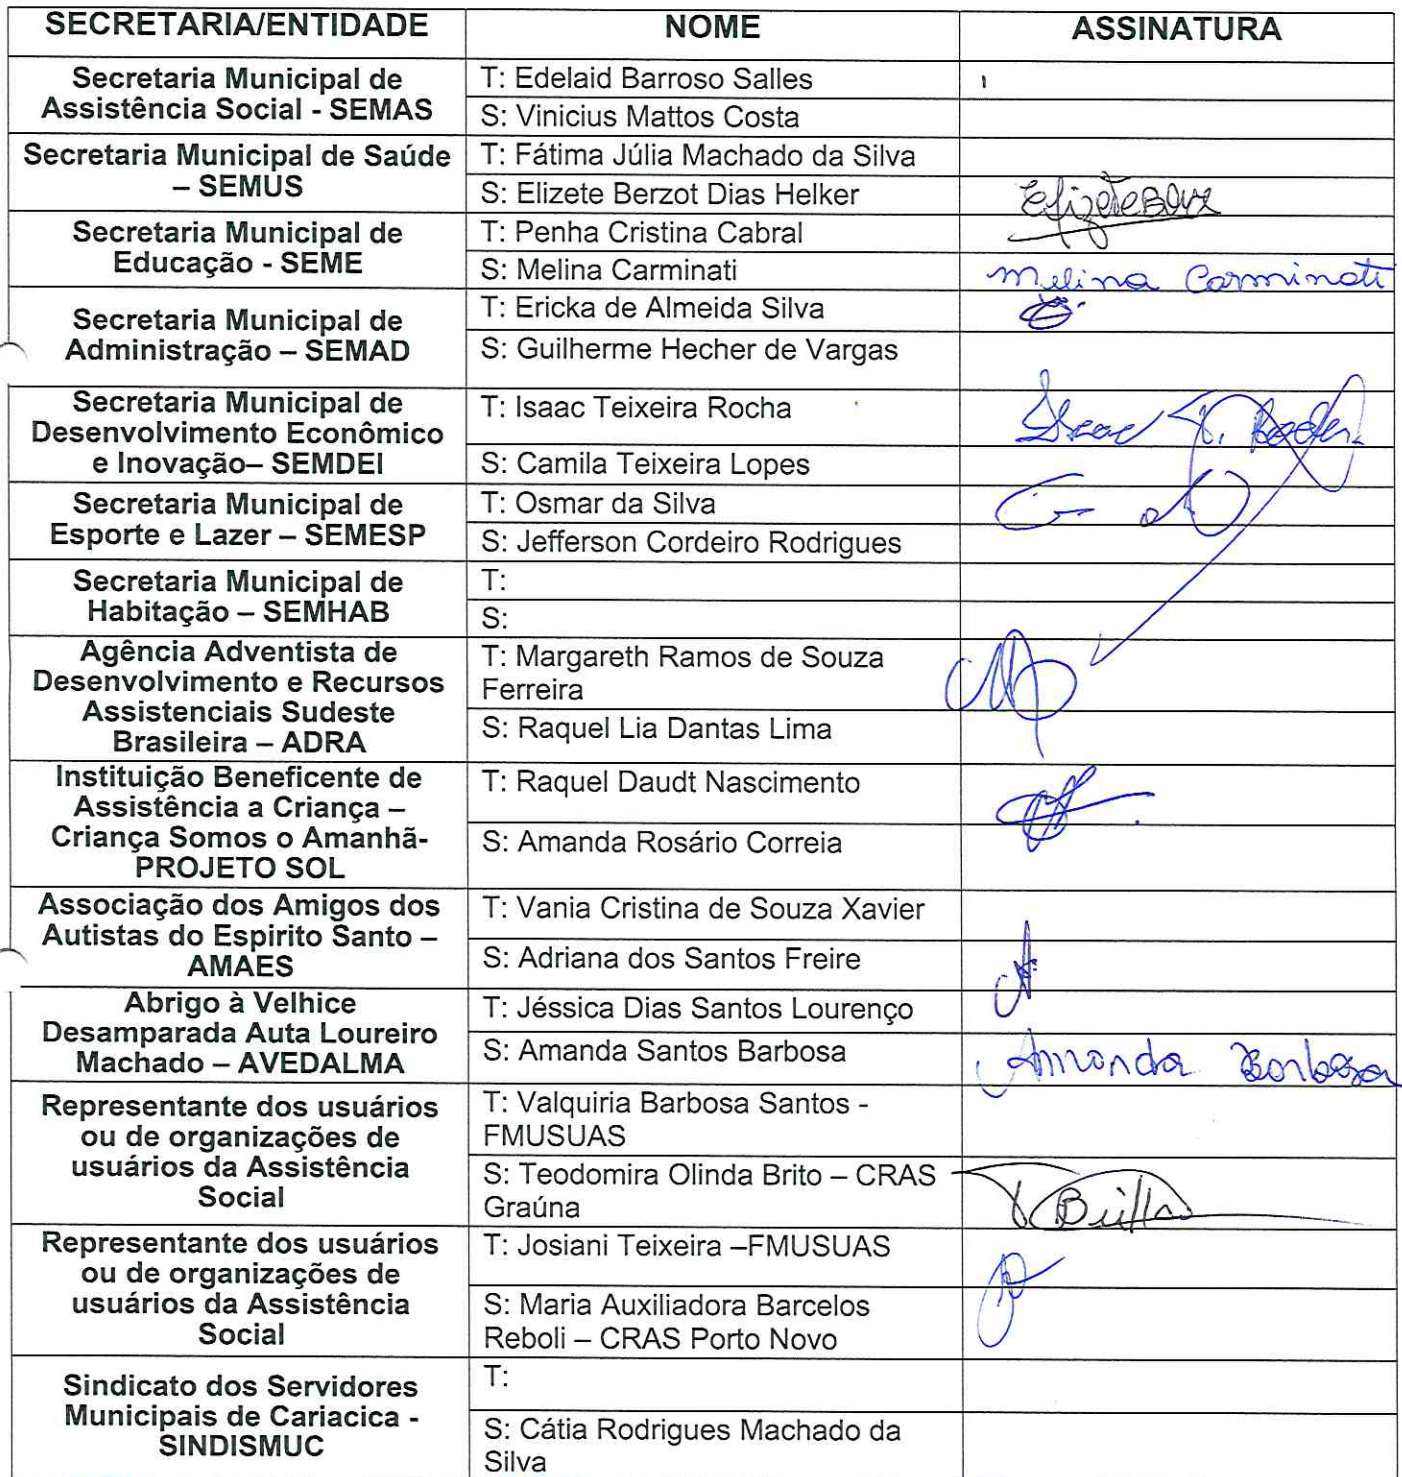 SECRETARIA/ENTIDADE NOME ASSINATURA
Secretaria Municipal de
Assistência Social - SEMAS
T: Edelaid Barroso Salles
S: Vinicius Mattos Costa
Secretaria Municipal de Saúde
– SEMUS
T: Fátima Júlia Machado da Silva
S: Elizete Berzot Dias Helker
Secretaria Municipal de
Educação - SEME
T: Penha Cristina Cabral
S: Melina Carminati
Melina Carminati
Secretaria Municipal de
Administração – SEMAD
T: Ericka de Almeida Silva
S: Guilherme Hecher de Vargas
Secretaria Municipal de
Desenvolvimento Econômico
e Inovação– SEMDEI
T: Isaac Teixeira Rocha
S: Camila Teixeira Lopes
Secretaria Municipal de
Esporte e Lazer – SEMESP
T: Osmar da Silva
S: Jefferson Cordeiro Rodrigues
Secretaria Municipal de
Habitação – SEMHAB
T:
S:
Agência Adventista de
Desenvolvimento e Recursos
Assistenciais Sudeste
Brasileira – ADRA
T: Margareth Ramos de Souza
Ferreira
S: Raquel Lia Dantas Lima
Instituição Beneficente de
Assistência a Criança –
Criança Somos o Amanhã-
PROJETO SOL
T: Raquel Daudt Nascimento
S: Amanda Rosário Correia
Associação dos Amigos dos
Autistas do Espirito Santo –
AMAES
T: Vania Cristina de Souza Xavier
S: Adriana dos Santos Freire
Abrigo à Velhice
Desamparada Auta Loureiro
Machado – AVEDALMA
T: Jéssica Dias Santos Lourenço
S: Amanda Santos Barbosa
Amanda Barbosa
Representante dos usuários
ou de organizações de
usuários da Assistência
Social
T: Valquiria Barbosa Santos -
FMUSUAS
S: Teodomira Olinda Brito – CRAS
Graúna
Representante dos usuários
ou de organizações de
usuários da Assistência
Social
T: Josiani Teixeira –FMUSUAS
S: Maria Auxiliadora Barcelos
Reboli – CRAS Porto Novo
Sindicato dos Servidores
Municipais de Cariacica -
SINDISMUC
T:
S: Cátia Rodrigues Machado da
Silva